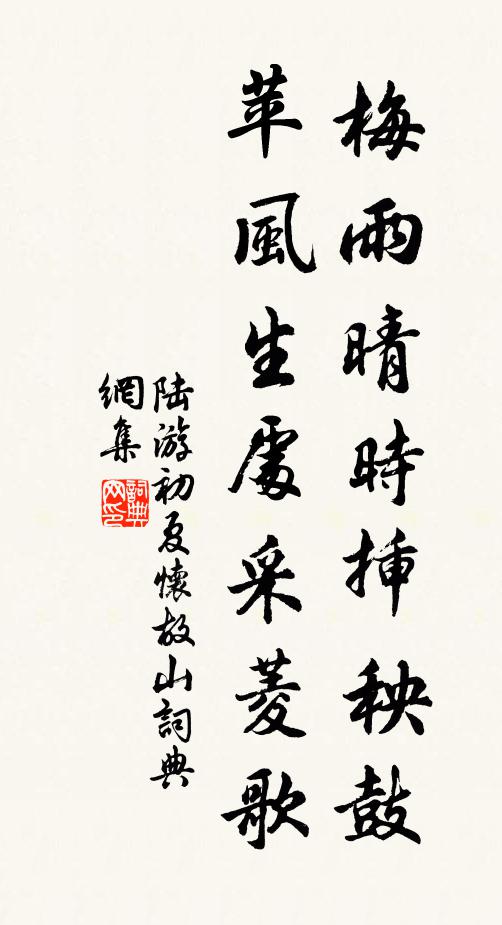 梅雨晴時挿秧鼓
苹風生處采菱歌
陆游初夏懷故山詞典
網集
詞典
网印